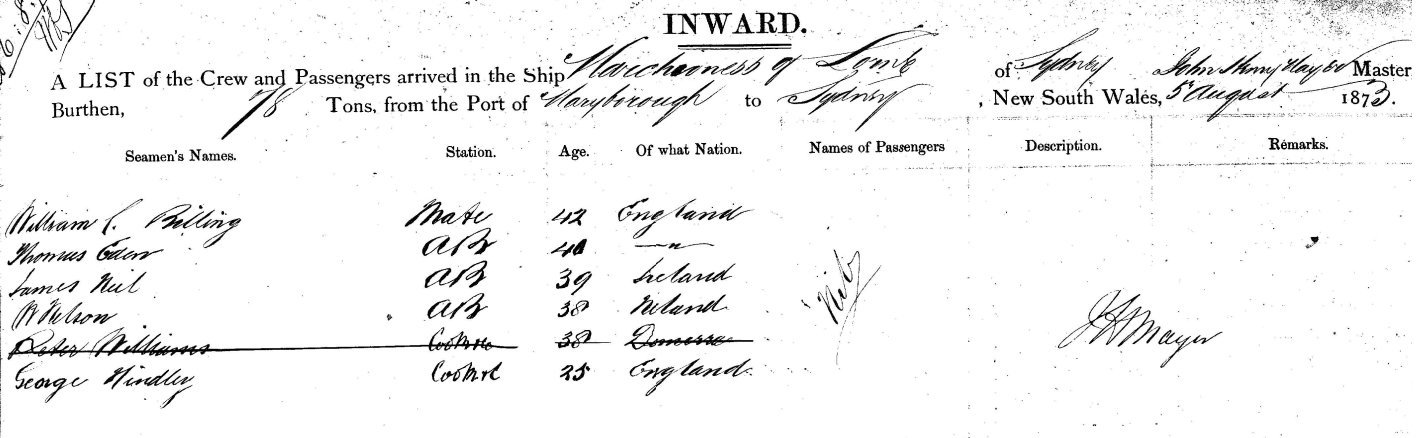 INWARD.
A LIST of the Crew and Passengers arrived in the Ship Marchioness of Lorne of Sydney John Henry Mayer Master
Burthen, 78 Tons, from the Port of Maryborough to Sydney, New South Wales, 5 August 1873.
Seamen's Names. Station. Age. Of what Nation. Names of Passengers Description. Remarks.
William C. Billing Mate 42 England
Thomas Eden AB 40 — " —
James Neil AB 39 Ireland
W Nelson AB 38 Ireland
Nil
Peter Williams 38
George Hindley 25 England
JH Mayer